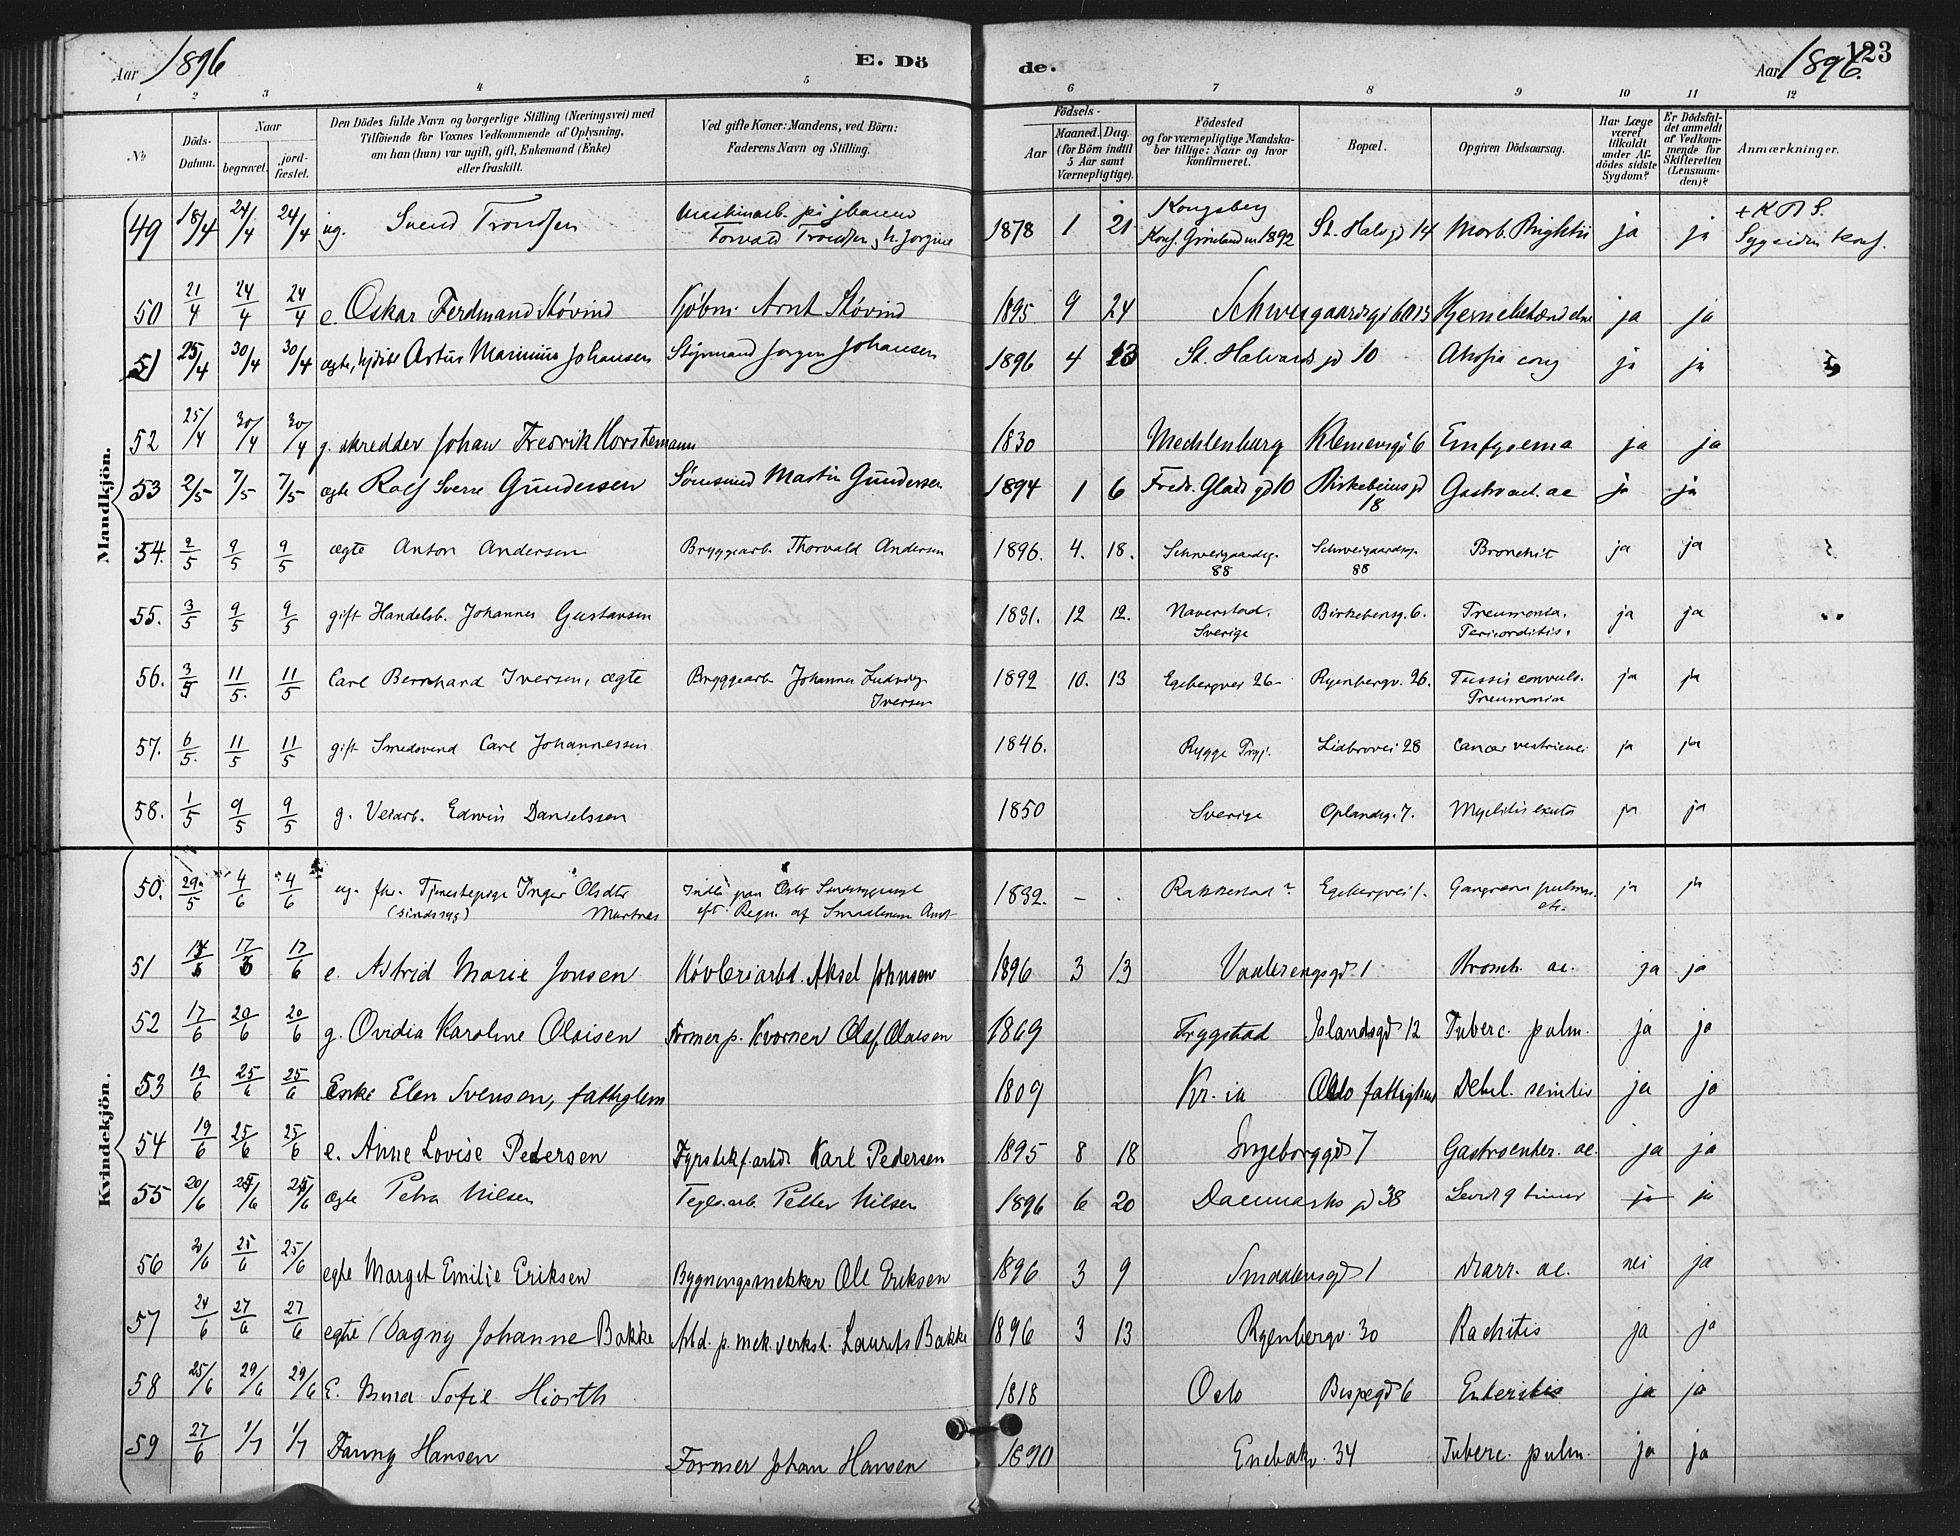 Aar 1896
E. Döde.
Aar 1896.
123
1 2 3 4 5 6 7 8 9 10 11 12
No
Döds-Datum.
Naar
begravet.
jordfæstet.
Den Dödes fulde Navn og borgerlige Stilling (Næringsvei) med
Tilföiende for Voxnes Vedkommende af Oplysning,
om han (hun) var ugift, gift, Enkemand (Enke)
eller fraskilt.
Ved gifte Koner: Mandens, ved Börn:
Faderens Navn og Stilling.
Födsels-
Aar
Maaned. Dag.
(for Börn indtil
5 Aar samt
Værnepligtige).
Födested
og for værnepligtige Mandska-
ber tillige: Naar og hvor
konfirmeret.
Bopæl.
Opgiven Dödsaarsag.
Har Læge
været
tilkaldt
under Af-
dödes sidste
Sygdom?
Er Dödsfal-
det anmeldt
af Vedkom-
mende for
Skifteretten
(Lensman-
den)?
Anmærkninger.
Mandkjön.
49 18/4 24/4 24/4 ug. Svend Trondsen Torvald Trondsen 1878 1 21 Kongsberg Konf. Grønland 1892 St. Halv gd 14 Morb. Brightii ja ja
50 21/4 24/4 24/4 e. Oskar Ferdinand Støvind Kjøbm. Arnt Støvind 1895 9 24 Schweigaardsgd Hjernebetændelse ja ja
51 25/4 30/4 30/4 ægte, hjdøbt Artur Marinius Johansen Styrmand Jørgen Johansen 1896 4 23 St. Halvards gd 10 ja ja
52 25/4 30/4 30/4 g. skredder Johan Fredrik Horstemann 1830 Mecklenburg Klemensgd 6 Emfysema ja ja
53 2/5 7/5 7/5 ægte Rolf Sverre Gundersen Martin Gundersen 1894 1 6 Fredr. Glads gd 10 Birkebeins gd 18 ja ja
54. 2/5 9/5 9/5 ægte Anton Andersen Bryggearb. Thorvald Andersen 1896. 4. 18. Schweigaardsg. 88 Schweigaardsg. 88 Bronchit ja ja
55. 3/5 9/5 9/5 gift Handelsb. Johannes Gustavsen 1831. 12 12. Naverstad. Sverige Birkebeinsg. 6. Pneumonia. Pericarditis. ja ja
56. 3/5 11/5. 11/5 Carl Bernhard Iversen, ægte Bryggearb. Johannes Ludvig Iversen 1892 10. 13 Egebergvei 26 Ryenbergv. 26. Tussis convuls. Pneumonia ja ja
57. 6/5. 11/5 11/5 gift Smedsvend Carl Johannessen 1846. Rygge Lidbrovei 28 Cancer ventriculi ja ja
58. 1/5 9/5 9/5 g. Veiarb. Edwin Danielssen 1850 Sverige Oplandsg. 7. Myelitis acuta ja ja
Kvindekjön.
50. 29/5 4/6 4/6 ug. fhv. Tjenestepige Inger Olsdtr (sindssyg) eft. Regn. af Smaalenene Amt 1832. – . Rakkestad? Egebergvei 1. Gangræna pulmon. etc. ja ja
51 17/6 e. Astrid Marie Jonsen Høvleriarbd. Aksel Johnsen 1896 3 13 Vaalerengsgd 1 Bronch. ac. ja ja
52 17/6 20/6 20/6 g. Ovidia Karoline Olaisen Former p. Kværner Olaf Olaisen 1869 Trygstad Jslandsgd 12 Tuberc. pulm. ja ja
53 19/6 25/6 25/6 Enke Elen Svensen, fattiglem 1809 Kr.ia Oslo fattighus Debil. senilis ja ja
54 19/6 25/6 25/6 e. Anne Lovise Pedersen Fyrstikf.arbd. Karl Pedersen 1895 8 18 Ingeborggd 7 Gastroenter. ac. ja ja
55 20/6 25/6 25/6 ægte Petra Nilsen Tegls.arb. Petter Nilsen 1896 6 20 Danmarks gd 38 Levet 9 timer ja ja
56 20/6 25/6 25/6 egte Margit Emilie Eriksen Bygningssnekker Ole Eriksen 1896 3 9 Smaalensgd 1 Diarr. ac. nei ja
57 24/6 27/6 27/6 egte Dagny Johanne Bakke Arbd. p. mek. verkst. Laurits Bakke 1896 3 13 Ryenbergv. 30 Rachitis ja ja
58 25/6 29/6 29/6 E. Sofie Hiorth 1818 Oslo Bispegd 6 Enteritis ja ja
59 27/6 1/7 1/7 Fanny Hansen Former Johan Hansen 1890 Enebakv. 34 Tuberc. pulm. ja ja